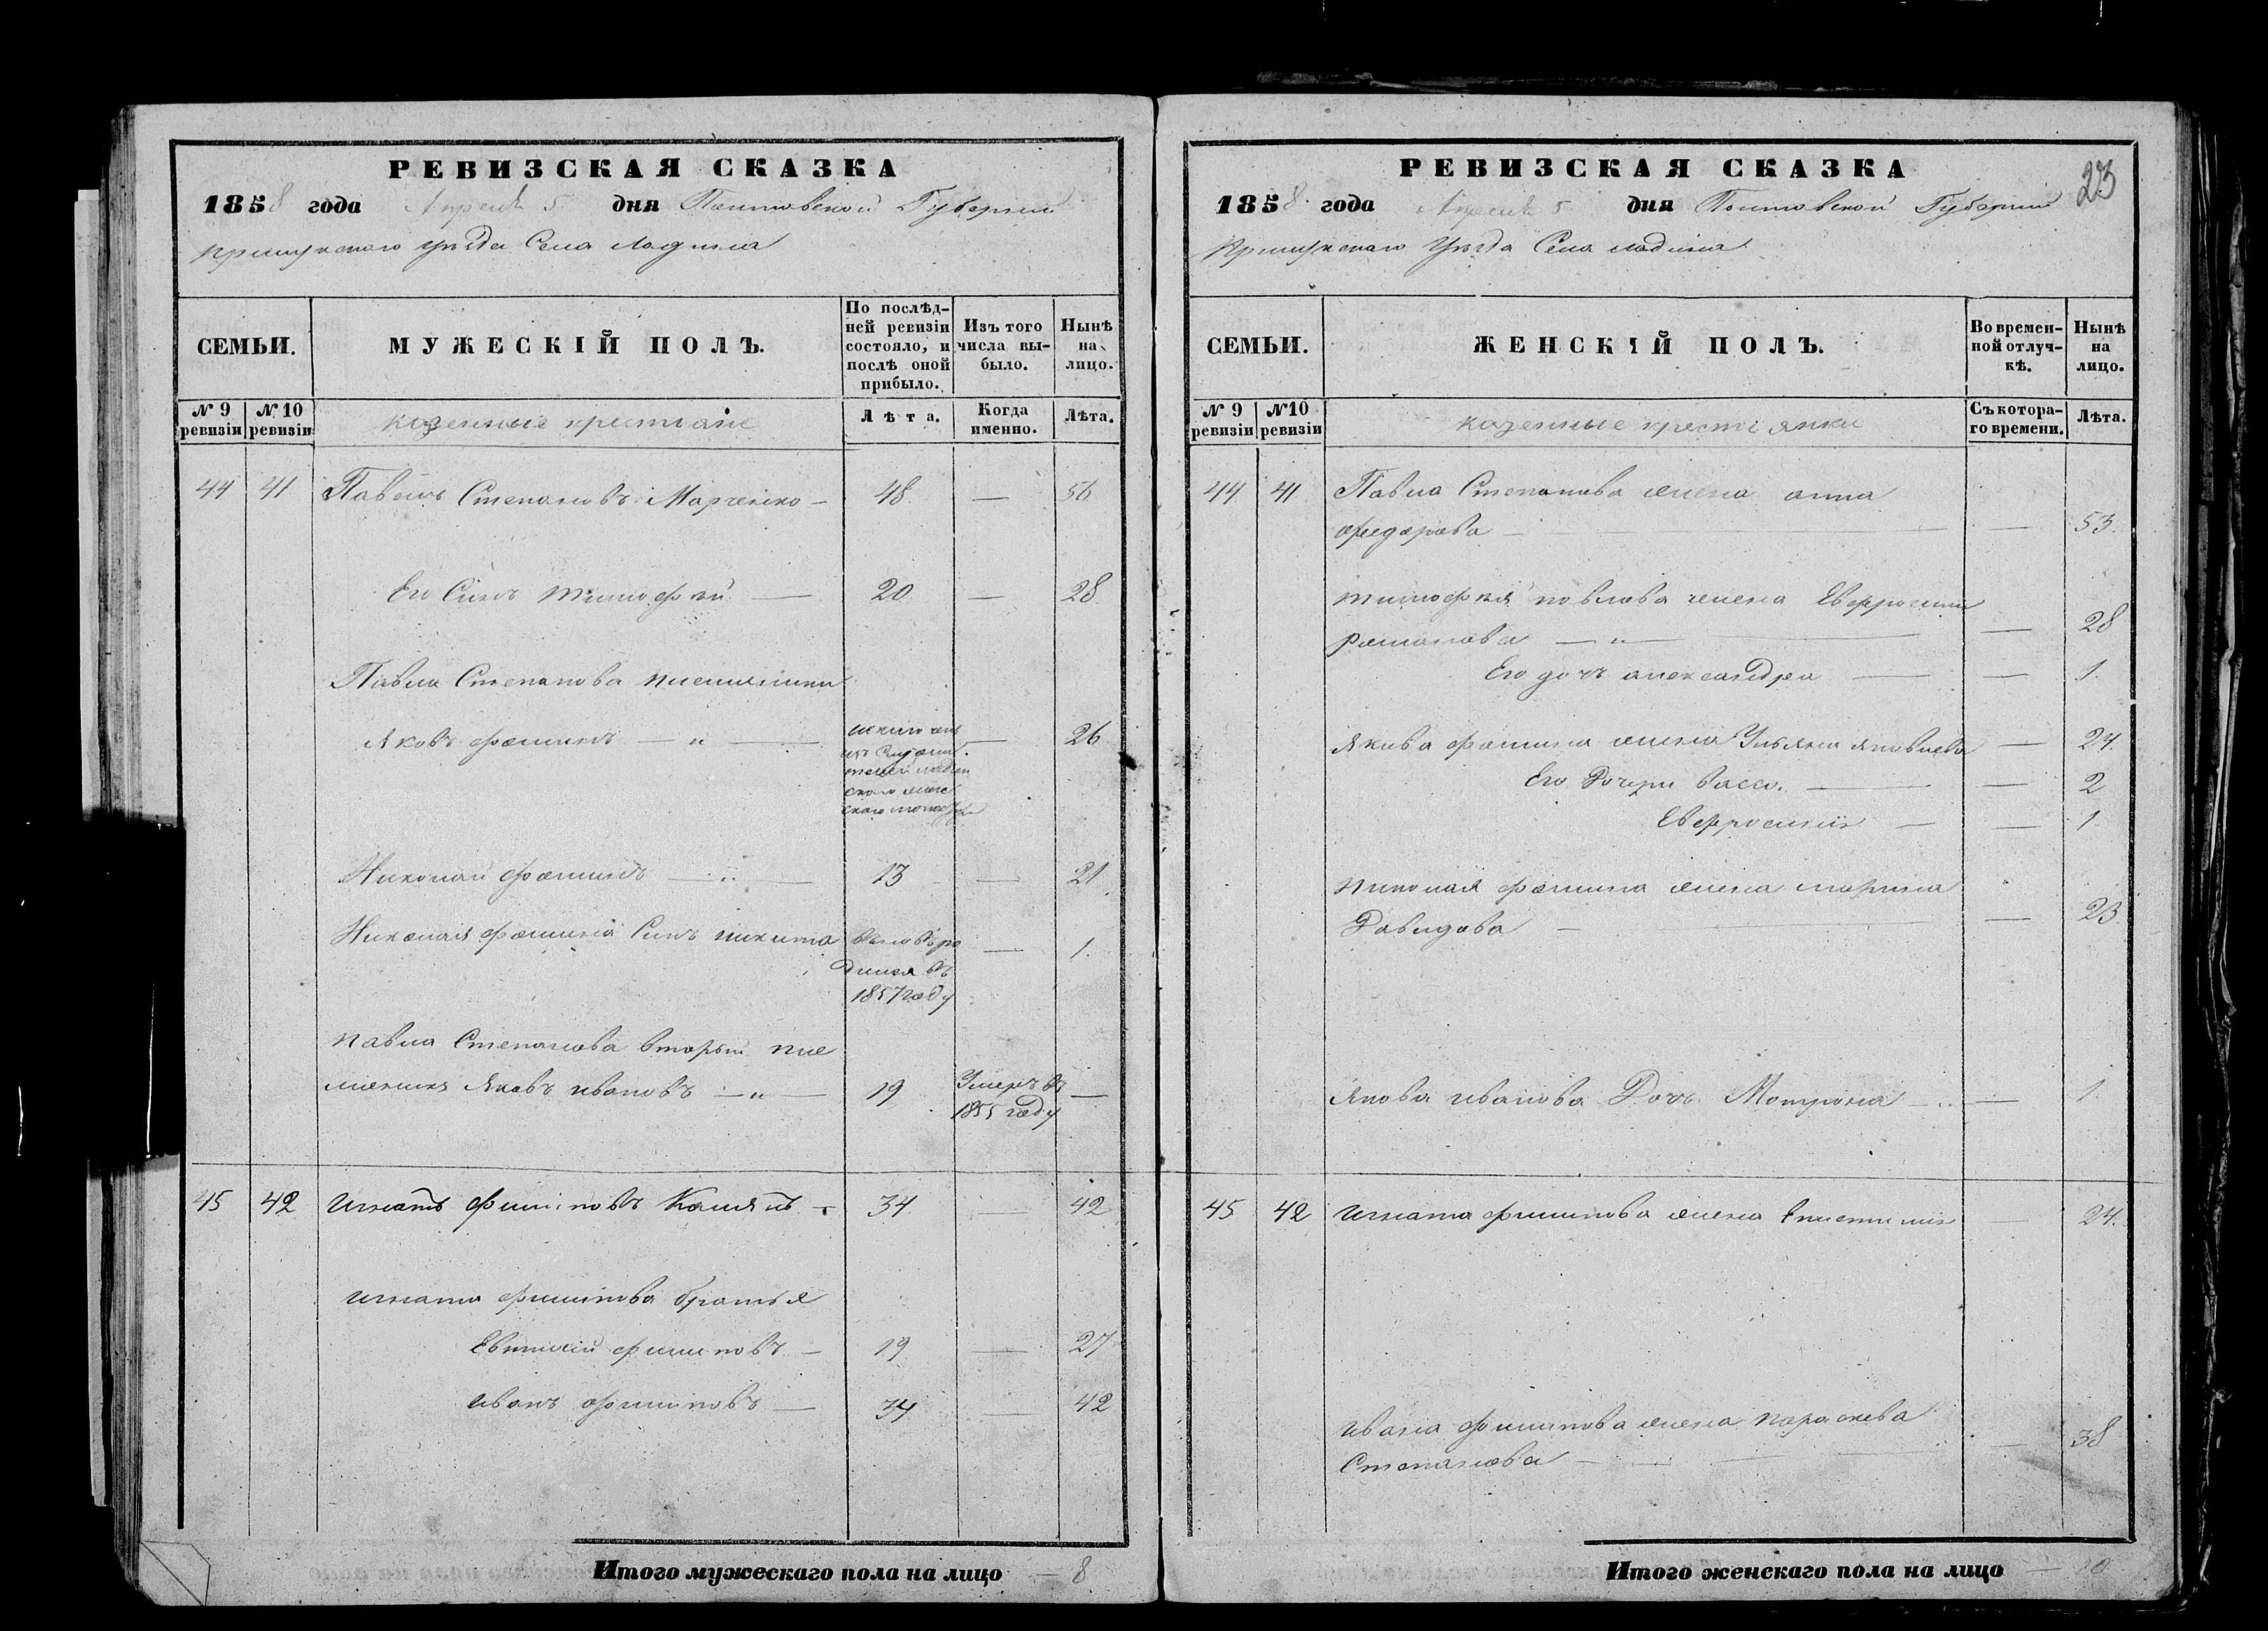 РЕВИЗСКАЯ СКАЗКА
1858 года Апреля 5 дня Полтавской Губернии
Прилукского Уезда Села Ладина
СЕМЬИ.
МУЖЕСКІЙ ПОЛЪ.
По послѣд-
ней ревизіи
состояло, и
послѣ оной
прибыло.
Изъ того
числа вы-
было.
Нынѣ
на
лицо.
№ 9
ревизіи
№ 10
ревизіи
казенные крестьяне
Лѣта.
Когда
именно.
Лѣта.
44 41 Павелъ Степановъ Марченко — 48 — 56
Его Сынъ тимофѣй — 20 — 28
Павла Степанова племянники
Яковъ фоминъ — „ — — 26
Николай фоминъ — „ — 13 — 21
Николая фомина Сынъ никита вновь ро — 1.
дился въ
1857 году
павла Степанова вторый пле
мянникъ Яковъ ивановъ — „ — 19 Умеръ въ —
1855 году
45 42 игнатъ филиповъ — 34 — 42
игната филипова братья
Евтихій филиповъ — 19 — 27
иванъ филиповъ — 34 — 42
Итого мужескаго пола на лицо — 8
РЕВИЗСКАЯ СКАЗКА
23
1858 года Апреля 5 дня Полтавской Губернии
Прилукского Уезда Села ладина
СЕМЬИ.
ЖЕНСКІЙ ПОЛЪ.
Во времен-
ной отлуч-
кѣ.
Нынѣ
на
лицо.
№ 9
ревизіи
№10
ревизіи
казенные крестьянки
Съ котора-
го времени.
Лѣта.
44 41 Павла Степанова жена анна
федорова — — 53.
тимофея павлова жена Евфросиния
романова — „ — — 28
Его дочь александра — — 1.
Якова фомина жена Ульяна яковлева — 24.
Его Дочери васса. — — 2
Евфросинія — — 1.
николая фомина жена марина
Давидова — — 23
Якова иванова Дочь Мотрона — — 1.
45 42 игната филипова жена — 24.
ивана филипова жена параскева
Степанова — — 38
Итого женскаго пола на лицо — 10